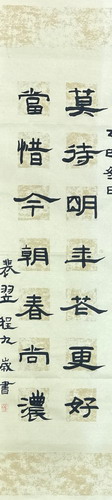 莫待明年花更好
當惜今朝春尚濃
裴翌程九歲書